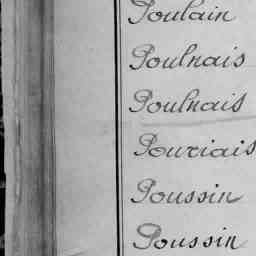 Poulain
Poulnais
Poulnais
Pouriais
Poussin
Poussin